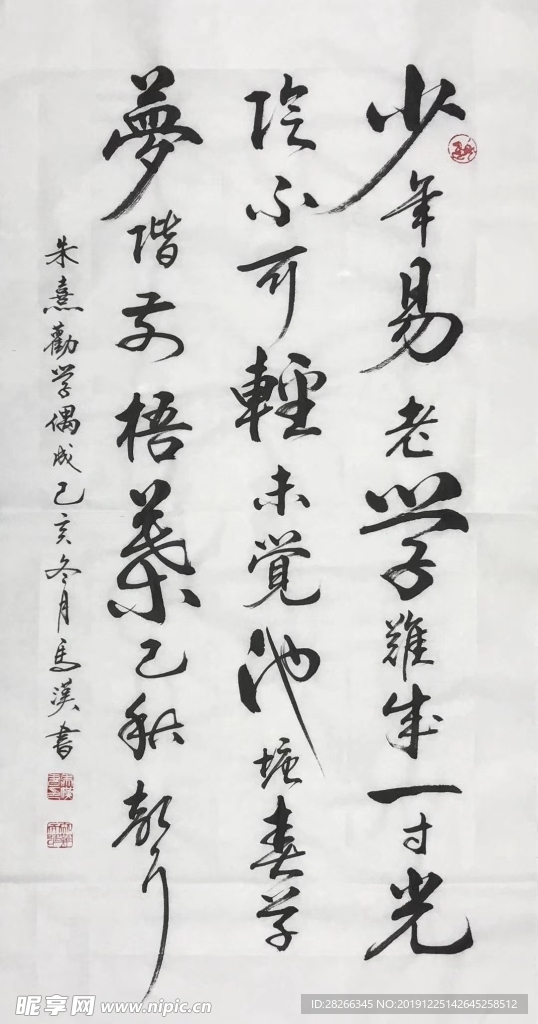 少年易老学難成一寸光
陰不可輕未覚池塘春草
夢階前梧葉已秋聲
朱熹勸学偶成己亥冬月馬書
昵享网 www.nipic.cn
ID:28266345 NO:20191225142645258512